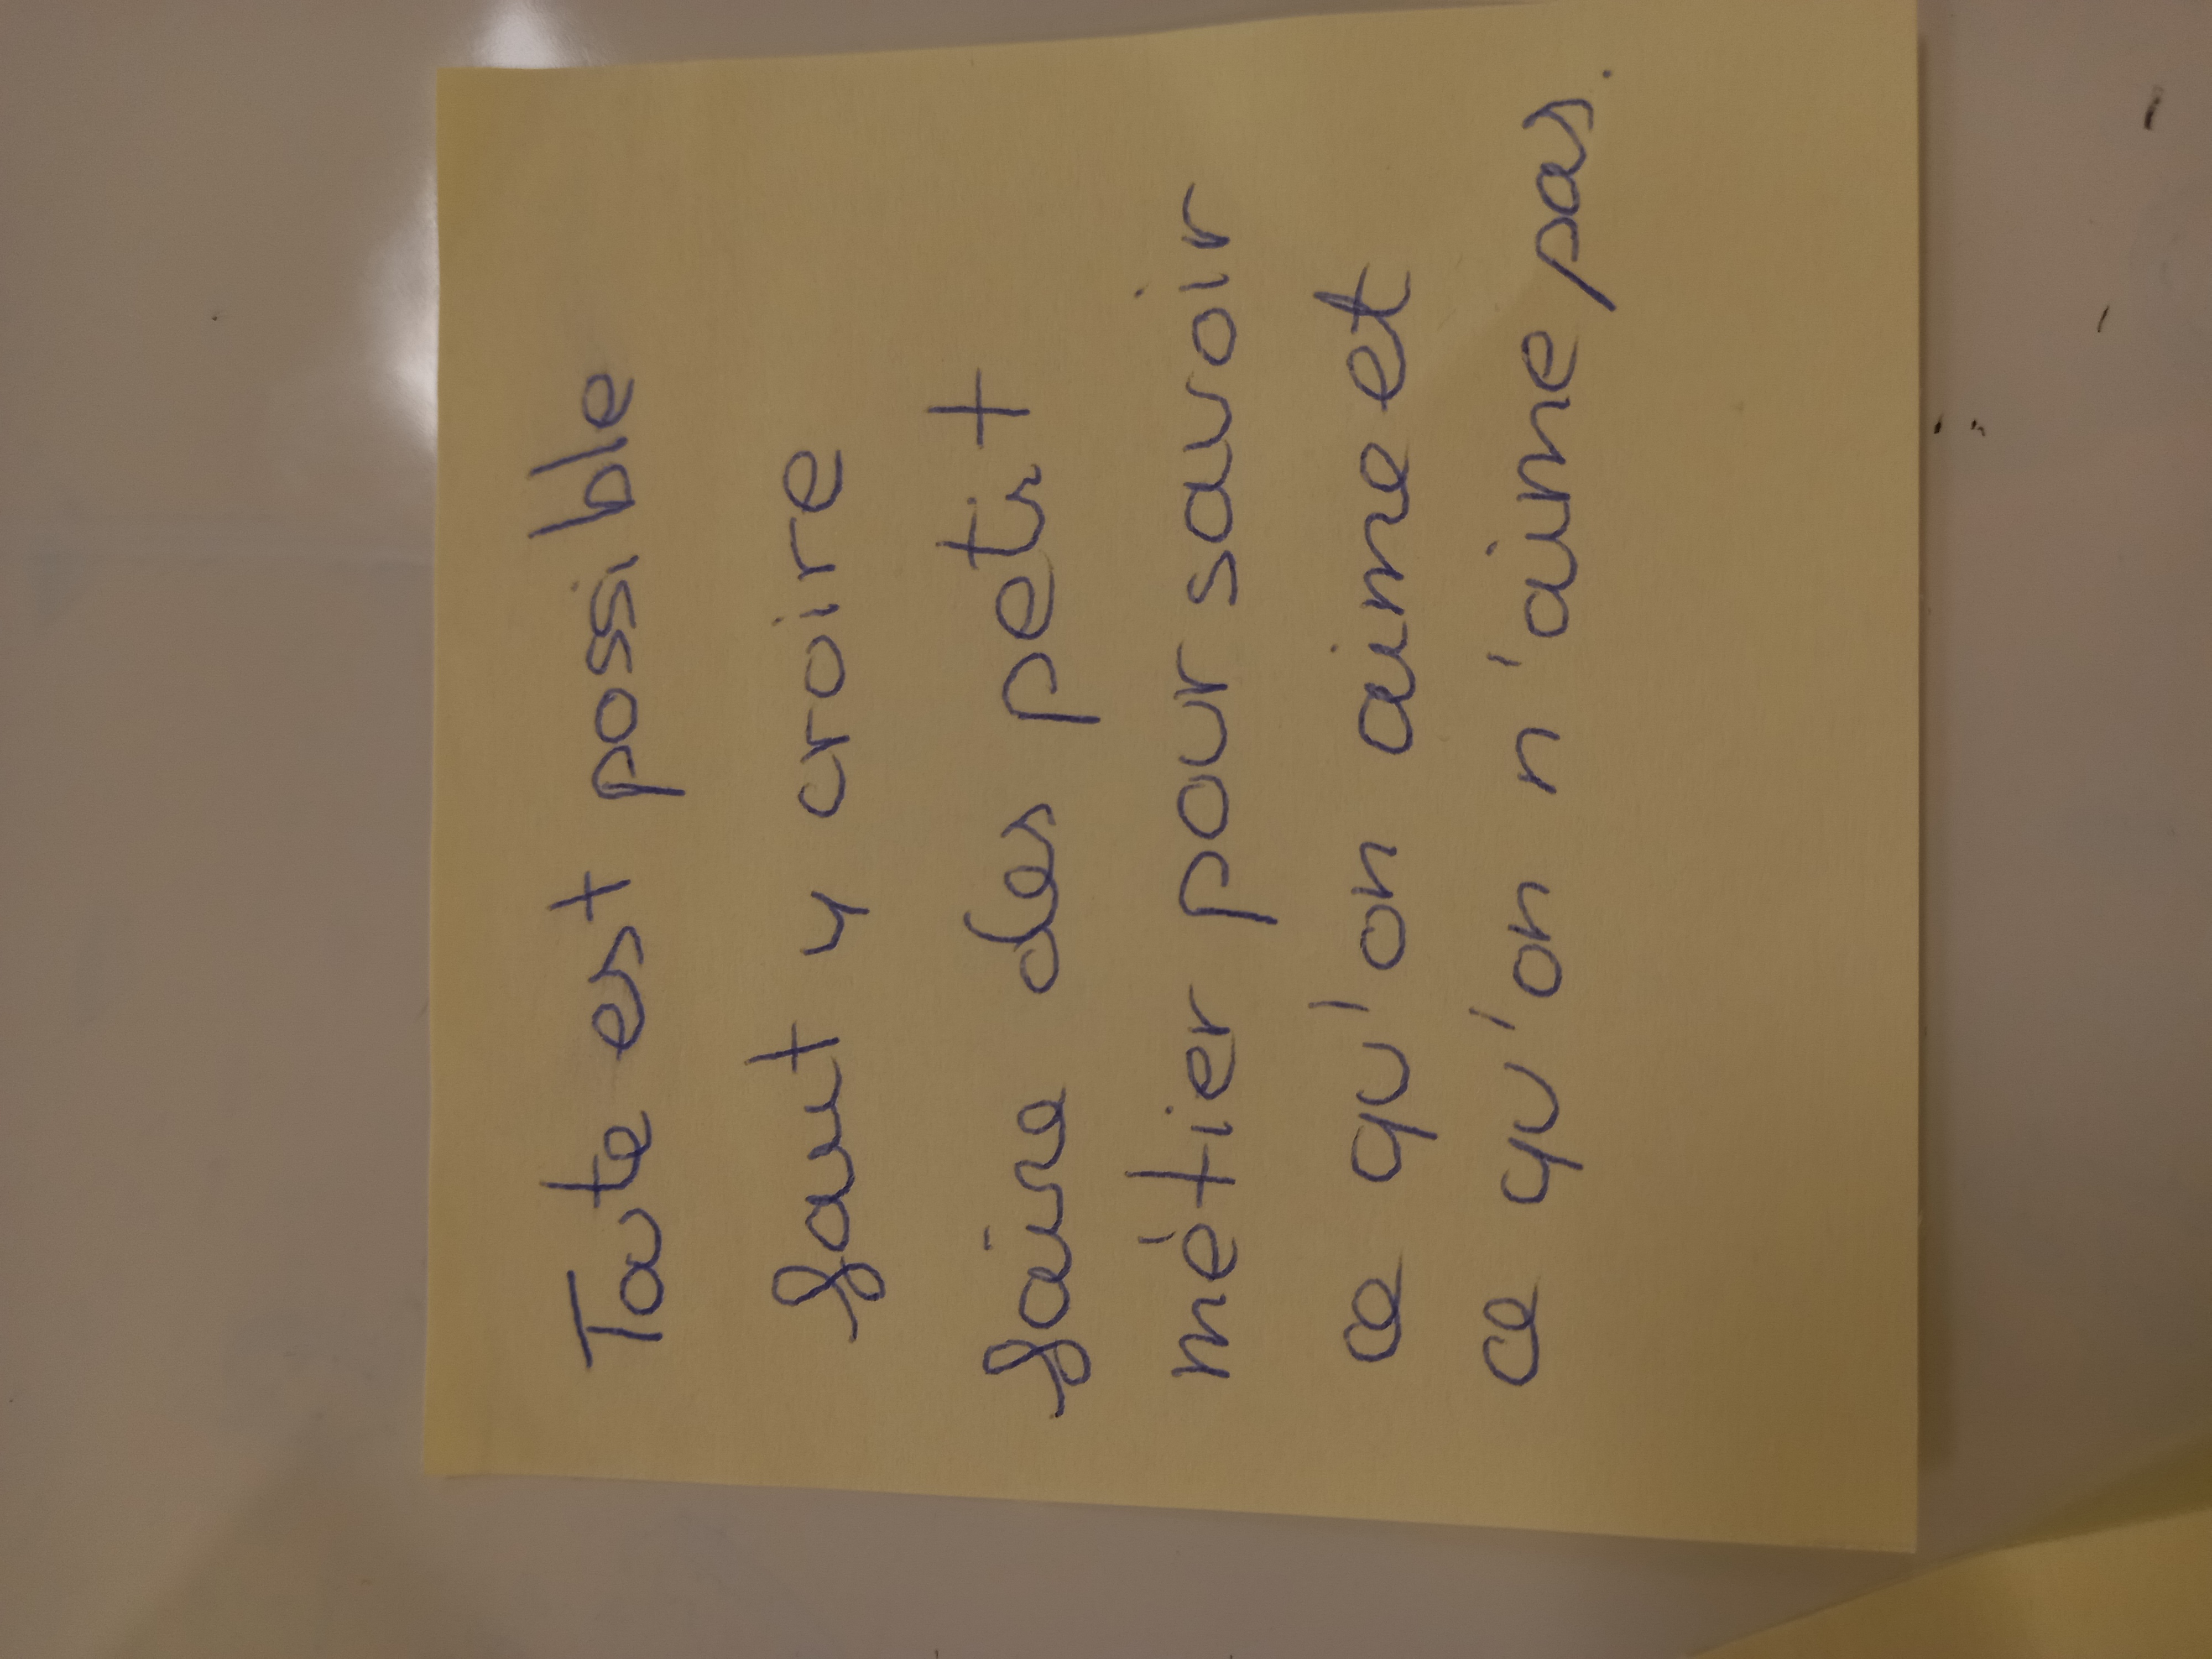 Toute est possible
faut y croire
faire des petit
métier pour savoir
ce qu'on aime et
ce qu'on n'aime pas.